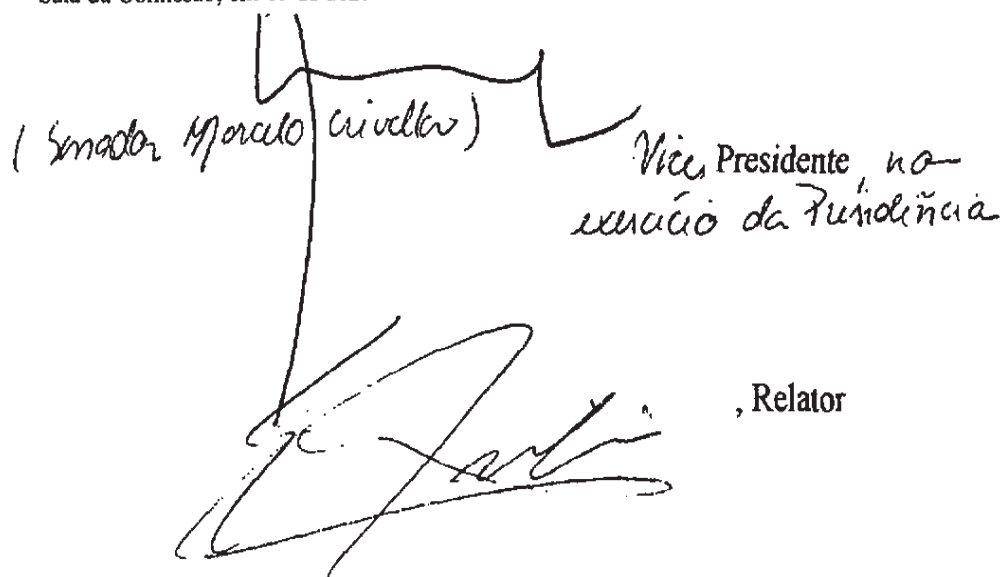 Sala da Comissão,
(Senador Marcelo Crivella)
Vice, Presidente, no
exercício da Presidência
, Relator